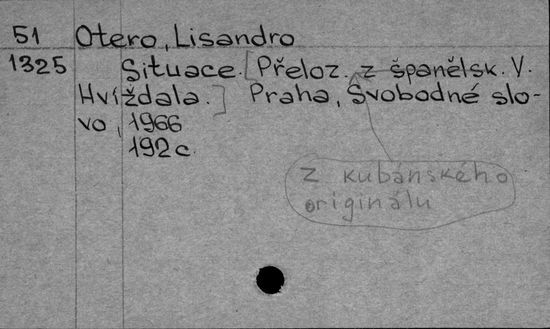 51 Otero, Lisandro
1325 Situace. [Přeloz. z španělsk. V.
Hvíždala.] Praha, Svobodné slo-
vo, 1966
192 c.
z kubánského
originálu